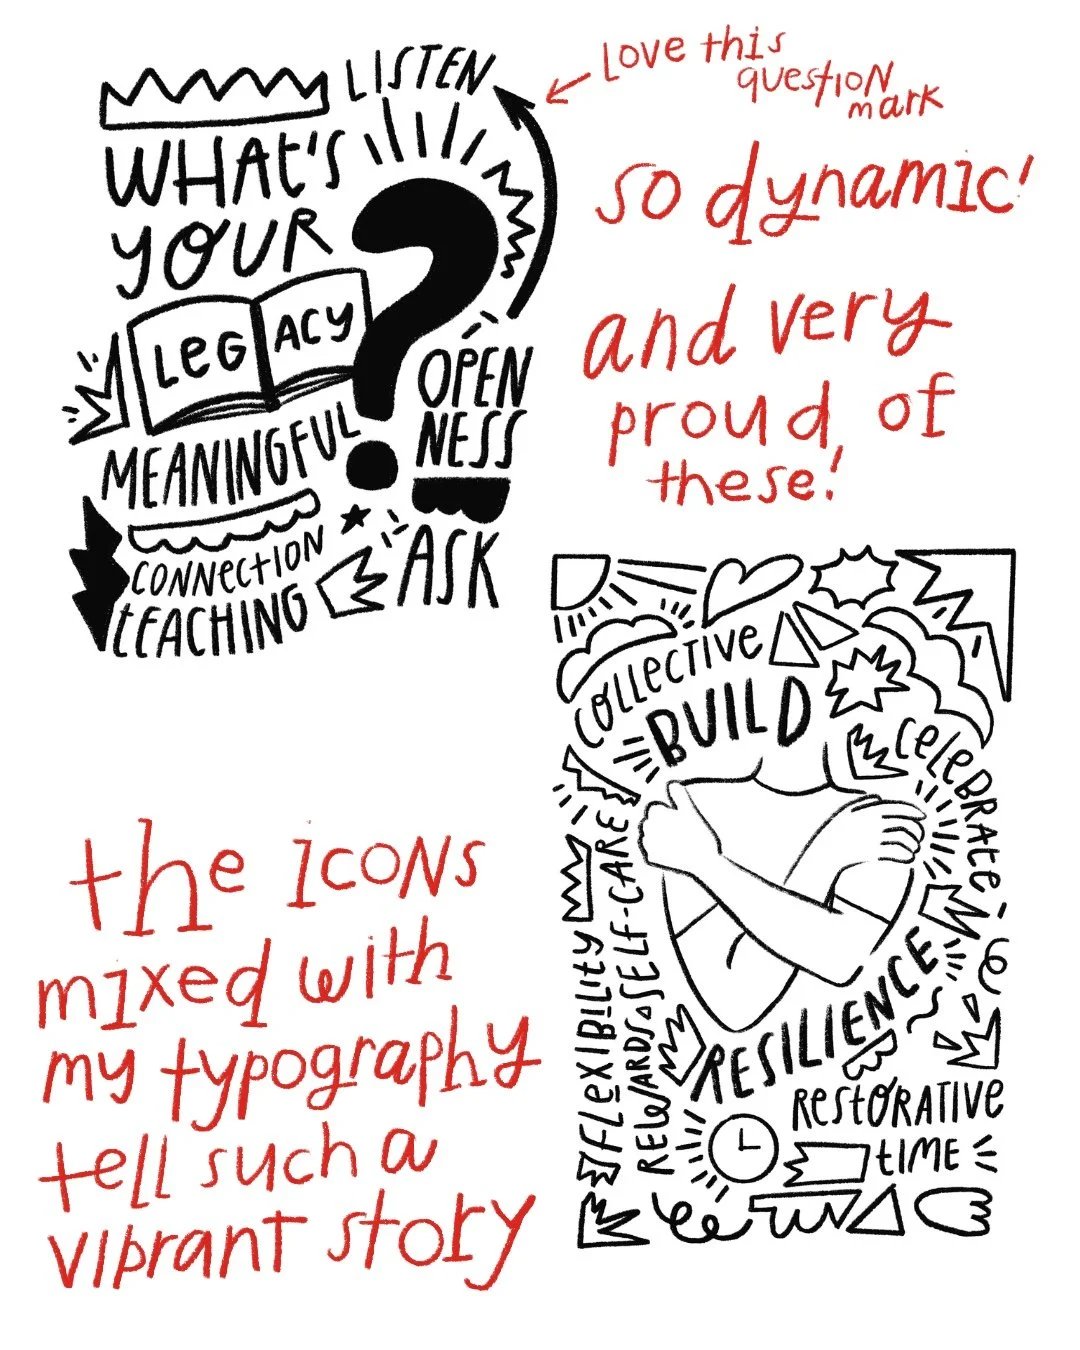 LISTEN
WHAT'S
YOUR
LEGACY
MEANINGFUL
CONNECTION
TEACHING
OPEN
NESS
ASK
LOVE this
question
mark
so dynamic!
and very
proud of
these!
COLLECTIVE
BUILD
CELEBRATE
SELF-CARE
FLEXIBILITY
REWARDS
RESILIENCE
RESTORATIVE
TIME
the ICONS
mixed with
my typography
tell such a
vibrant story